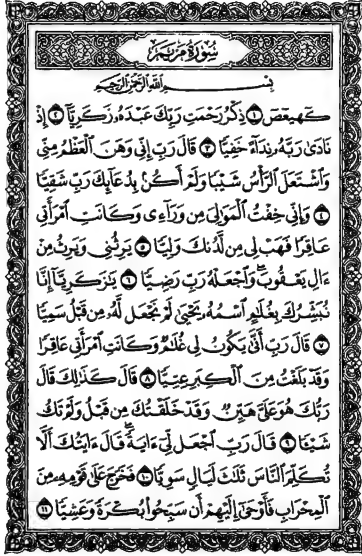 سُورَةُ مَرْيَمَ
بِسْمِ اللَّهِ الرَّحْمَٰنِ الرَّحِيمِ
كٓهيعٓصٓ ١ ذِكْرُ رَحْمَتِ رَبِّكَ عَبْدَهُۥ زَكَرِيَّآ ٢ إِذْ
نَادَىٰ رَبَّهُۥ نِدَآءً خَفِيًّا ٣ قَالَ رَبِّ إِنِّى وَهَنَ ٱلْعَظْمُ مِنِّى
وَٱشْتَعَلَ ٱلرَّأْسُ شَيْبًا وَلَمْ أَكُنۢ بِدُعَآئِكَ رَبِّ شَقِيًّا
٤ وَإِنِّى خِفْتُ ٱلْمَوَٰلِىَ مِن وَرَآءِى وَكَانَتِ ٱمْرَأَتِى
عَاقِرًا فَهَبْ لِى مِن لَّدُنكَ وَلِيًّا ٥ يَرِثُنِى وَيَرِثُ مِنْ
ءَالِ يَعْقُوبَ ۖ وَٱجْعَلْهُ رَبِّ رَضِيًّا ٦ يَٰزَكَرِيَّآ إِنَّا
نُبَشِّرُكَ بِغُلَٰمٍ ٱسْمُهُۥ يَحْيَىٰ لَمْ نَجْعَل لَّهُۥ مِن قَبْلُ سَمِيًّا
٧ قَالَ رَبِّ أَنَّىٰ يَكُونُ لِى غُلَٰمٌ وَكَانَتِ ٱمْرَأَتِى عَاقِرًا
وَقَدْ بَلَغْتُ مِنَ ٱلْكِبَرِ عِتِيًّا ٨ قَالَ كَذَٰلِكَ قَالَ
رَبُّكَ هُوَ عَلَىَّ هَيِّنٌ وَقَدْ خَلَقْتُكَ مِن قَبْلُ وَلَمْ تَكُ
شَيْـًٔا ٩ قَالَ رَبِّ ٱجْعَل لِّىٓ ءَايَةً ۚ قَالَ ءَايَتُكَ أَلَّا
تُكَلِّمَ ٱلنَّاسَ ثَلَٰثَ لَيَالٍ سَوِيًّا ١٠ فَخَرَجَ عَلَىٰ قَوْمِهِۦ مِنَ
ٱلْمِحْرَابِ فَأَوْحَىٰٓ إِلَيْهِمْ أَن سَبِّحُوا۟ بُكْرَةً وَعَشِيًّا ١١